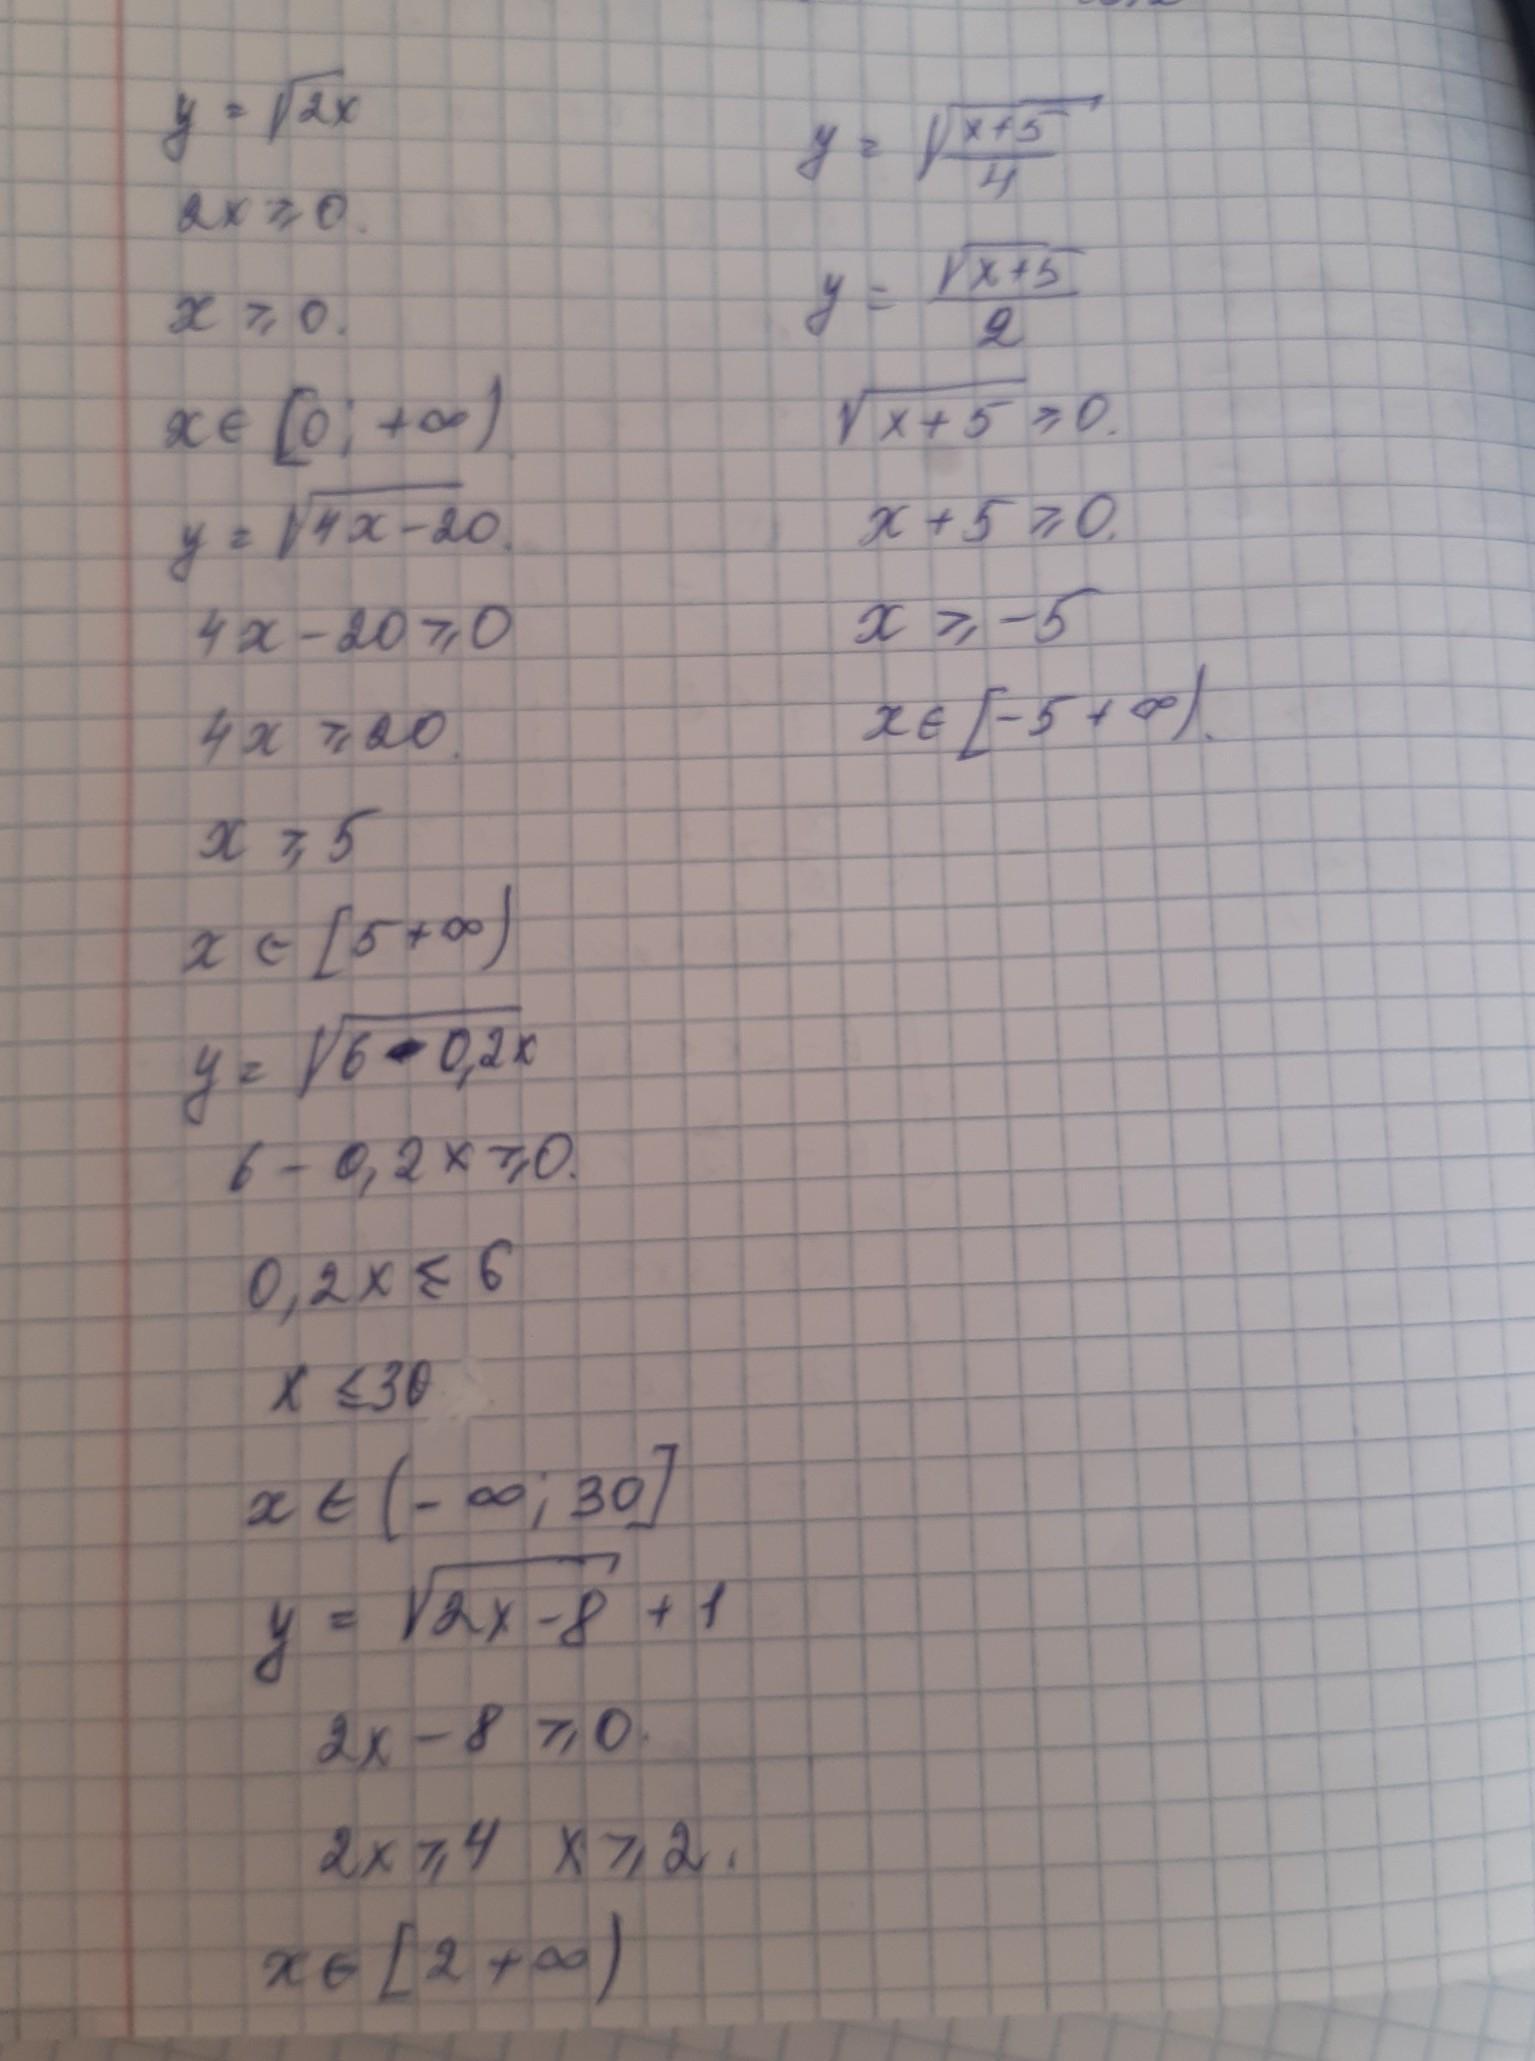 y = √2x
2x ⩾ 0.
x ⩾ 0.
x ∈ [0; +∞)
y = √4x - 20.
4x - 20 ⩾ 0
4x ⩾ 20.
x ⩾ 5
x ∈ [5 + ∞)
y = √6 - 0,2x
6 - 0,2x ⩾ 0.
0,2x ⩽ 6
x ⩽ 30
x ∈ (- ∞; 30]
y = √2x - 8 + 1
2x - 8 ⩾ 0.
2x ⩾ 4 x ⩾ 2.
x ∈ [2 + ∞)
y = √x+5/4
y = √x+5/2
√x + 5 ⩾ 0.
x + 5 ⩾ 0.
x ⩾ -5
x ∈ [-5 + ∞).